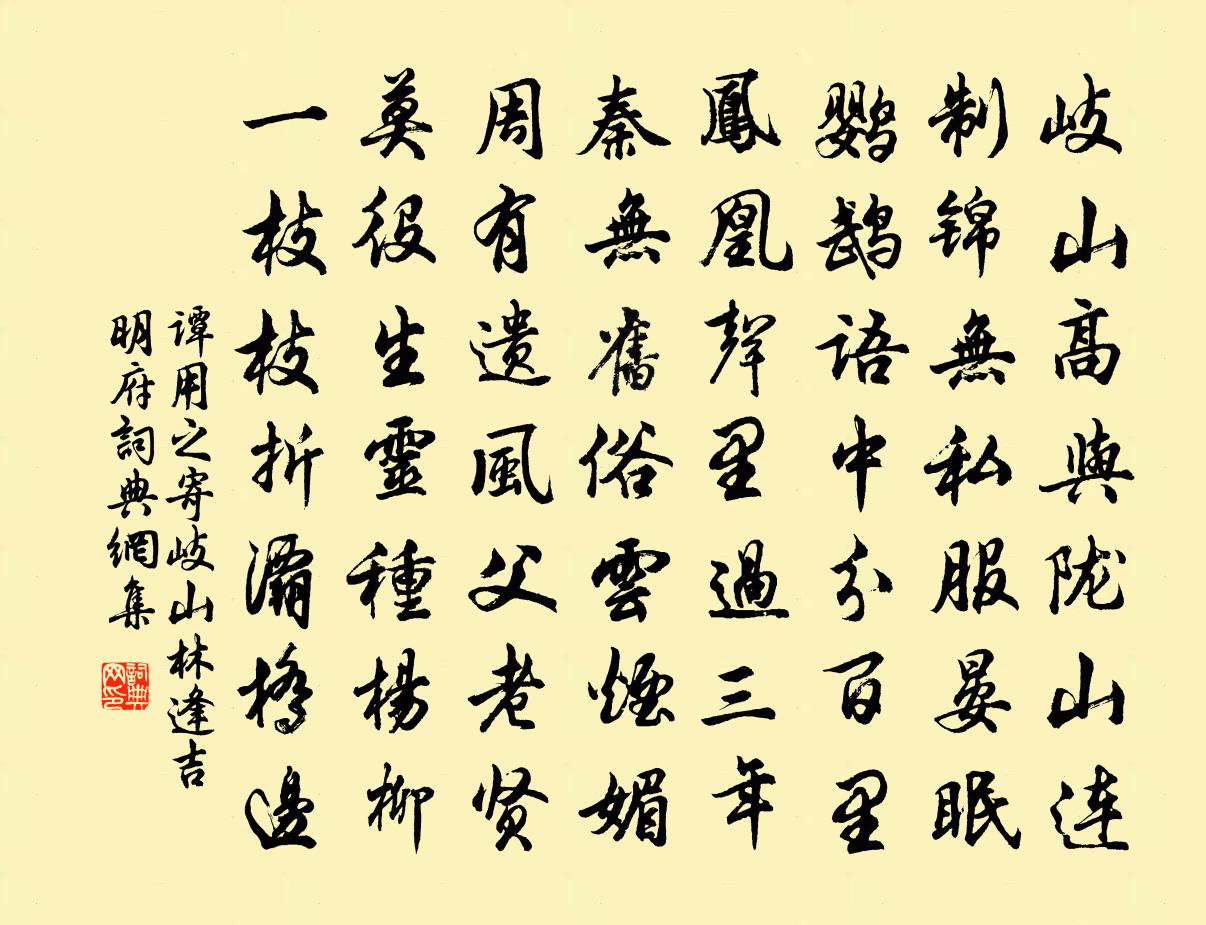 岐山高與陇山連
制锦無私服晏眠
鹦鹉語中分百里
鳳凰聲里過三年
秦無舊俗雲煙媚
周有遗風父老贤
莫役生靈種楊柳
一枝枝折灞橋邊
谭用之寄岐山林逢吉
明府詞典網集
詞典
网印